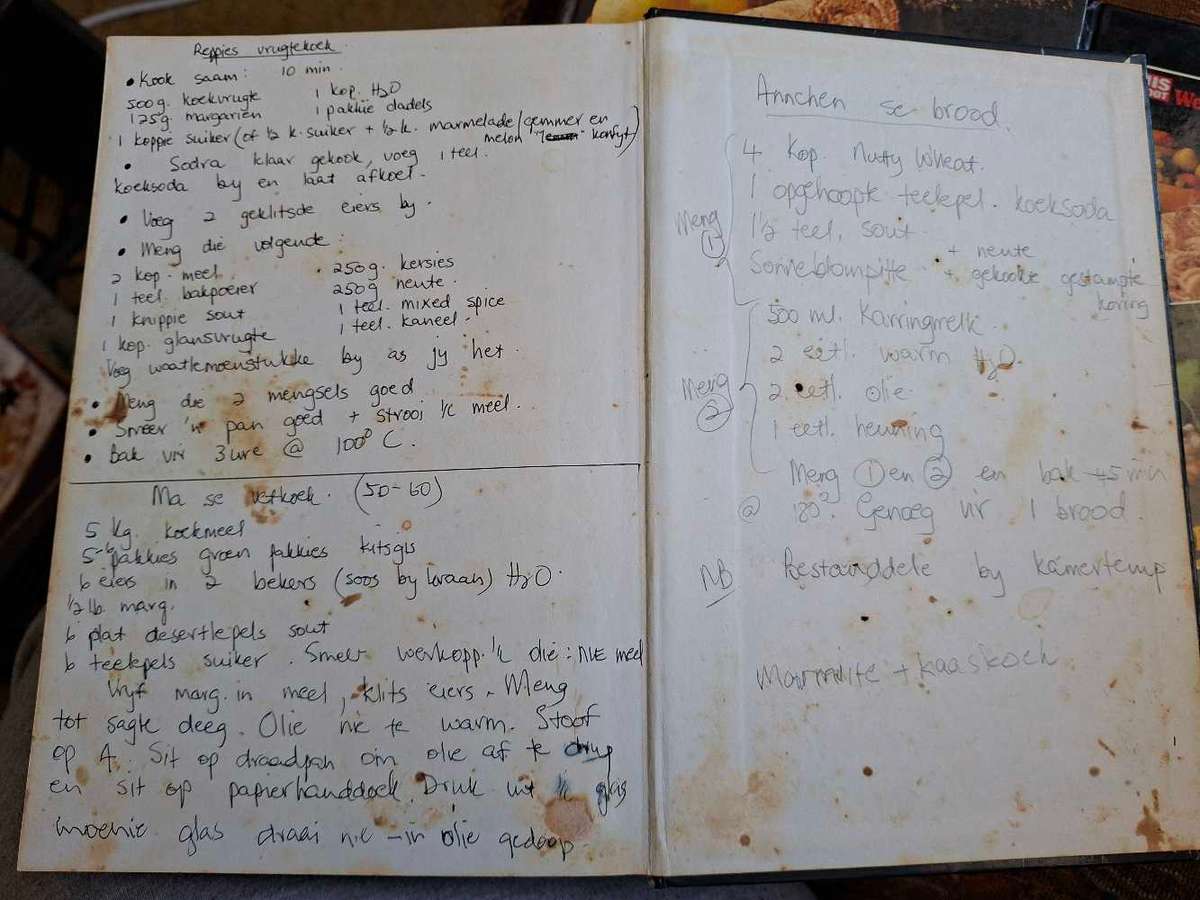 Reppies vrugtekoek.
• Kook saam: 10 min.
500g. koekvrugte 1 kop. H2O
125g. margarien 1 pakkie dadels
1 koppie suiker (of ½ k. suiker + ½ k. marmelade/gemmer en
melon konfyt)
• Sodra klaar gekook, voeg 1 teel.
koeksoda by en laat afkoel.
• Voeg 2 geklitsde eiers by.
• Meng die volgende:
2 kop. meel. • 250g. kersies
1 teel. bakpoeier 250g neute.
1 knippie sout 1 teel. mixed spice
1 kop. glansvrugte 1 teel. kaneel.
Voeg waatlemoenstukke by as jy het.
• Meng die 2 mengsels goed
• Smeer 'n pan goed + strooi meel.
• Bak vir 3 ure @ 100° C.
Ma se vetkoek. (50-60)
5 kg. koekmeel
5-6 pakkies groen pakkies kitsgis
6 eiers in 2 bekers (soos by kraan) H2O.
½ lb. marg.
6 plat desertlepels sout
6 teelepels suiker. Smeer werkopp. die: NIE meel
Vryf marg. in meel, klits eiers. Meng
tot sagte deeg. Olie nie te warm. Stoof
op 4. Sit op draadpan om olie af te drup
en sit op papierhanddoek. Druk uit glas
moenie glas draai nie – in olie gedoop.
Annchen se brood.
4 kop. Nutty Wheat.
1 opgehoopte teelepel. koeksoda
Meng 1
1½ teel. sout.
+ neute
Sonneblompitte + gekookte gestampte
koring
500 ml. Karringmelk
2 eetl. warm H2O.
Meng 2
2 eetl. olie
1 eetl. heuning
Meng 1 en 2 en bak 45 min
@ 180°. Genoeg vir 1 brood.
NB Bestanddele by kamertemp
Marmite + kaaskoek